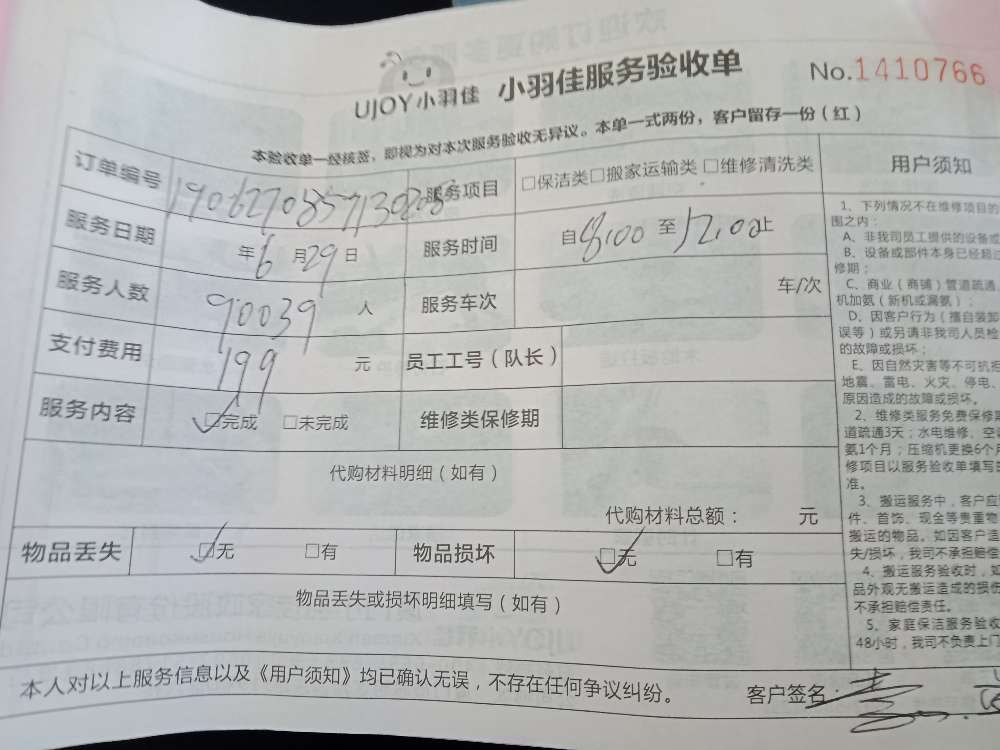 UJOY小羽佳 小羽佳服务验收单 No.1410766
本验收单一经核签，即视为对本次服务验收无异议。本单一式两份，客户留存一份（红）
订单编号
服务项目 □保洁类□搬家运输类 □维修清洗类
服务日期 年6月29日 服务时间 自8:00至12:00止
服务人数 90039 人 服务车次 车/次
支付费用 199 元 员工工号（队长）
服务内容 □完成 □未完成 维修类保修期
代购材料明细（如有）
代购材料总额： 元
物品丢失 □无 □有 物品损坏 □无 □有
物品丢失或损坏明细填写（如有）
本人对以上服务信息以及《用户须知》均已确认无误，不存在任何争议纠纷。 客户签名：
用户须知
1、下列情况不在维修项目的
围之内：
A、非我司员工提供的设备或
B、设备或部件本身已经超过
修期；
C、商业（商铺）管道疏通、
机加氨（新机或漏氨）；
D、因客户行为（擅自装卸
误等）或另请非我司人员检
的故障或损坏；
E、因自然灾害等不可抗拒
地震、雷电、火灾、停电、
原因造成的故障或损坏。
2、维修类服务免费保修期
道疏通3天；水电维修、空调
氨1个月；压缩机更换6个月
修项目以服务验收单填写的
准。
3、搬运服务中，客户应
件、首饰、现金等贵重物
搬运的物品，如因客户造
失/损坏，我司不承担赔偿
4、搬运服务验收时，如
品外观无搬运造成的损伤
不承担赔偿责任。
5、家庭保洁服务验收
48小时，我司不负责上门